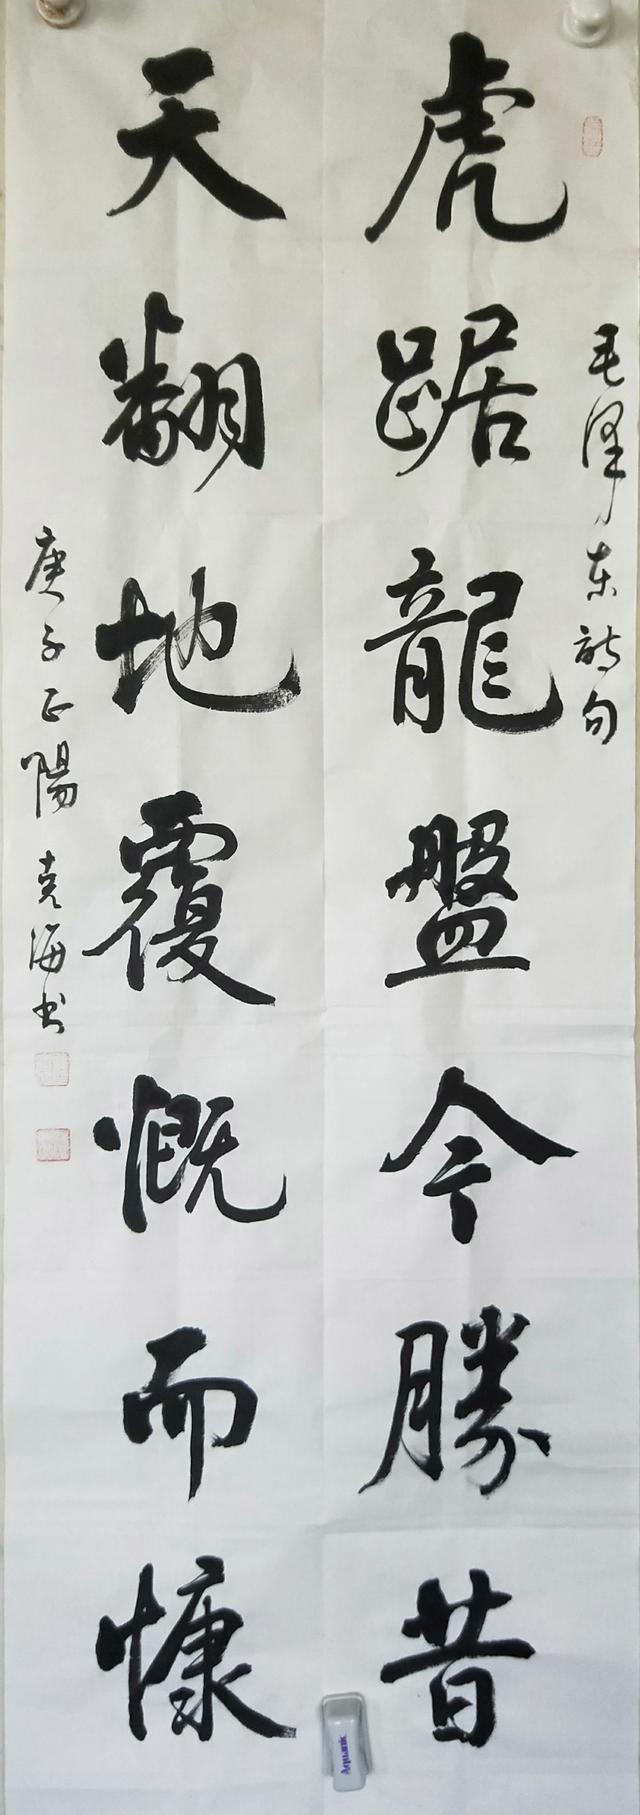 毛泽东诗句
虎踞龍盤今勝昔
天翻地覆慨而慷
庚子正陽 克海书
Aquanik